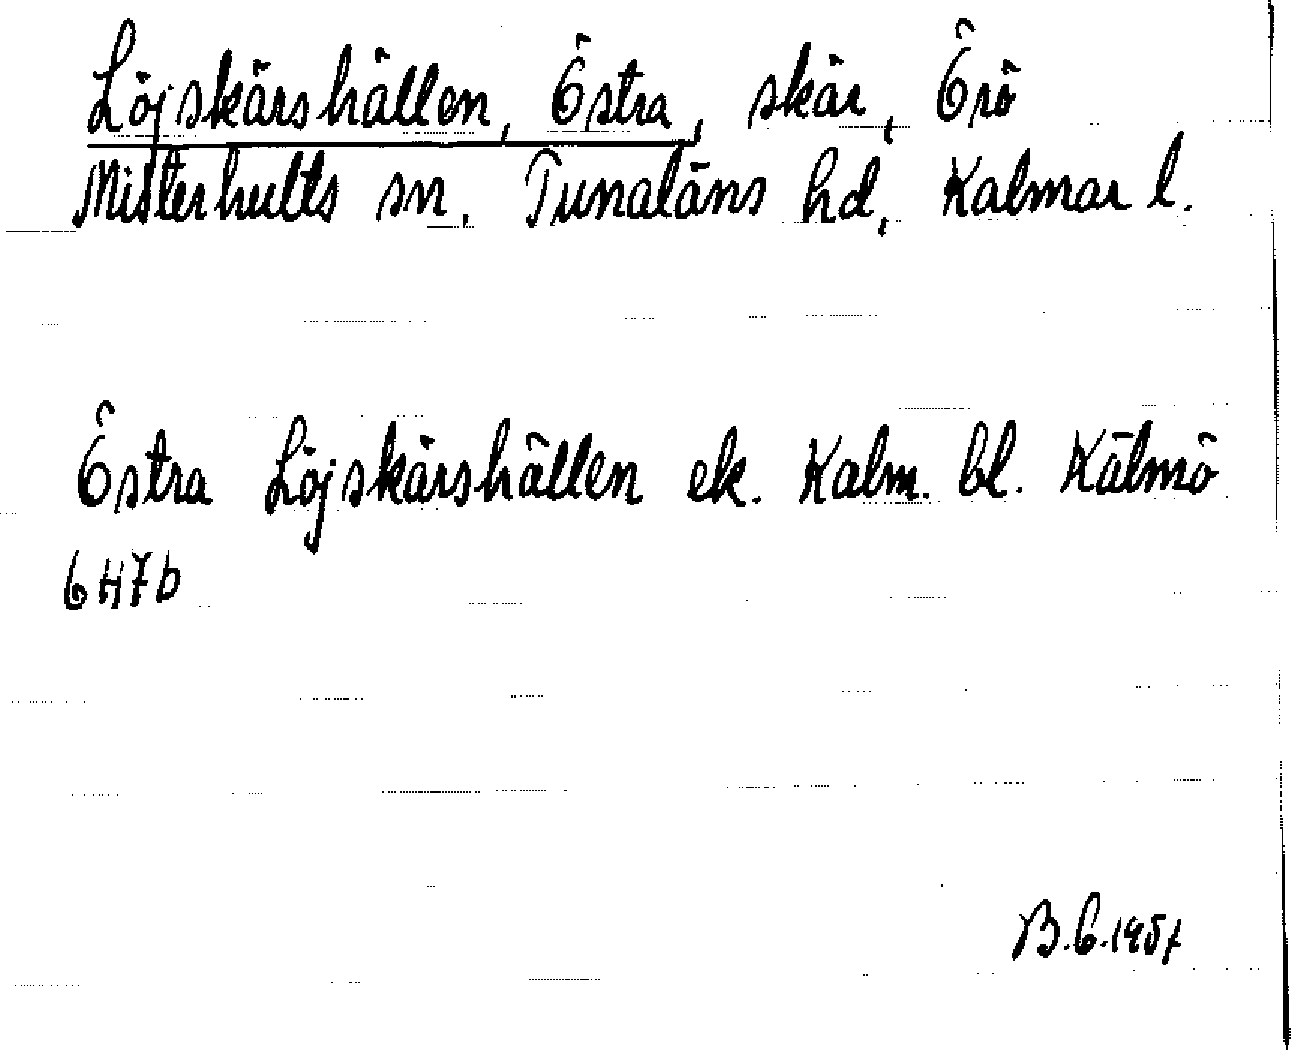 Löjskärshällen, Östra, skär, Örö
Misterhults sn. Tunaläns hd, Kalmar l.
Östra Löjskärshällen ek. Kalm. bl. Kälmö
6H7b
B.C.1957